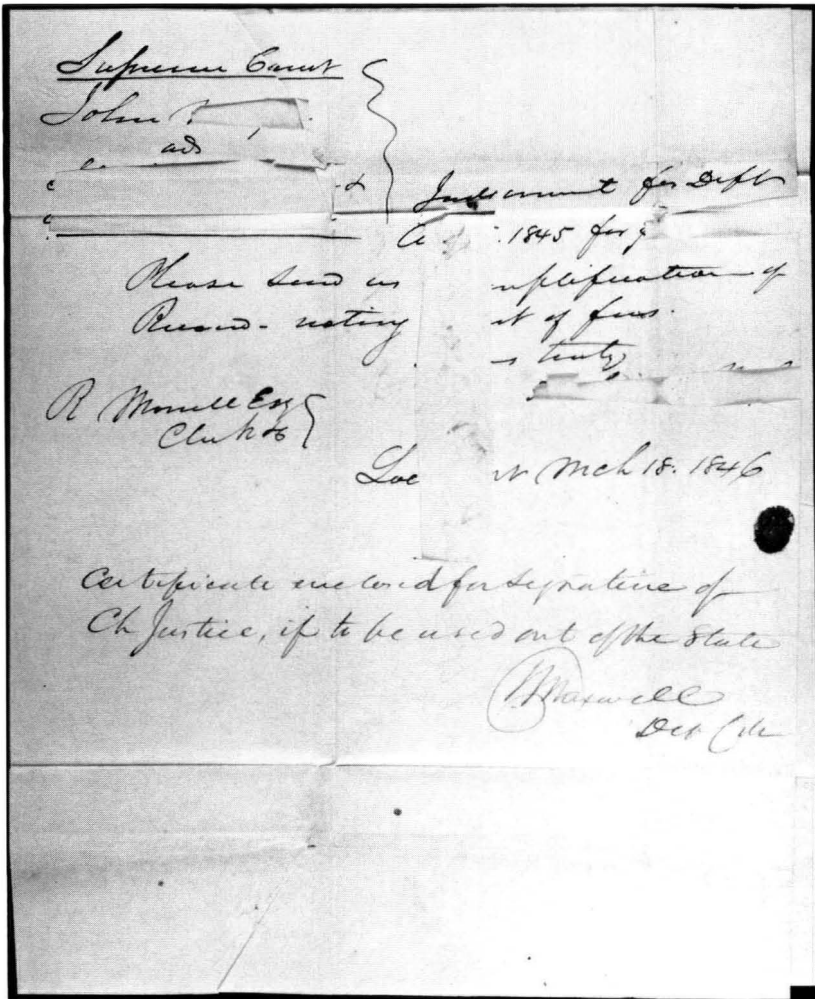 Supreme Court
John
ads
Judgment for Deft
1845 for
Please send us uplification of
Record - noting t of fees.
s truly
R Morrell Esq
Clerk &c
Loc t Mch 18. 1846
Certificate enclosed for signature of
Ch Justice, if to be used out of the State
Maxwell
Dep Clk